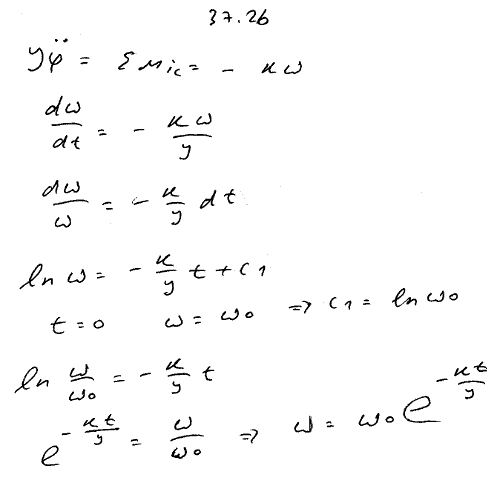 37.26
yφ̈ = Σ M i c = - ϰω
dω/dt = - ϰω/y
dω/ω = - ϰ/y dt
ln ω = - ϰ/y t + C1
t = 0 ω = ω0 => C1 = ln ω0
ln ω/ω0 = - ϰ/y t
e^(-ϰt/y) = ω/ω0 => ω = ω0 e^(-ϰt/y)